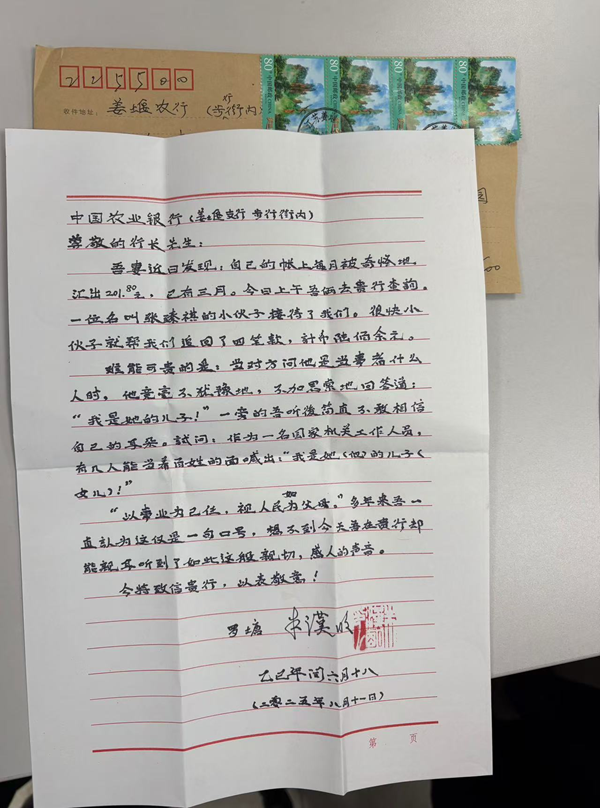 225500
收件地址： 姜堰农行（步行街内）
80 中国邮政
80 中国邮政
80 中国邮政
80 中国邮政
中国农业银行（姜堰支行 步行街内）
尊敬的行长先生：
吾妻近日发现：自己的帐上每月被奇怪地
汇出201.80元，已有三月。今日上午吾俩去贵行查询。
一位名叫张臻祺的小伙子接待了我们。很快小
伙子就帮我们追回了四笔款，计币陆佰余元。
难能可贵的是：当对方问他是当事者什么
人时，他竟毫不犹豫地，不加思索地回答道：
“我是她的儿子！”一旁的吾听後简直不敢相信
自己的耳朵。試问：作为一名国家机关工作人员，
有几人能当着百姓的面喊出：“我是她（他）的儿子（
女儿）！”
“以常业为己任，视人民如为父母。”多年来吾一
直认为这仅是一句口号，想不到今天吾在贵行却
能亲耳听到了如此这般亲切，感人的声音。
今特致信贵行，以表敬意！
罗塘
乙巳年闰六月十八
（二零二五年八月十一日）
第 页